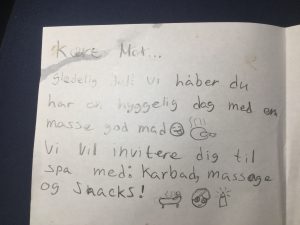 Kære Mor...
glædelig Jul! Vi håber du
har en hyggelig dag med en
masse god mad
Vi vil invitere dig til
spa med: Karbad, massage
og Snacks!